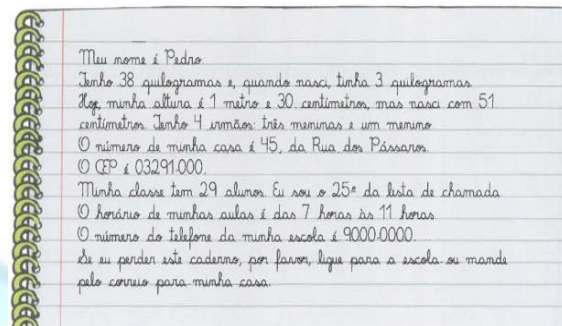 Meu nome é Pedro.
Tenho 38 quilogramas e, quando nasci, tinha 3 quilogramas.
Hoje, minha altura é 1 metro e 30 centímetros, mas nasci com 51
centímetros. Tenho 4 irmãos: três meninas e um menino.
O número de minha casa é 45, da Rua dos Pássaros.
O CEP é 03291-000.
Minha classe tem 29 alunos. Eu sou o 25º da lista de chamada.
O horário de minhas aulas é das 7 horas às 11 horas.
O número do telefone da minha escola é 9000-0000.
Se eu perder este caderno, por favor, ligue para a escola ou mande
pelo correio para minha casa.